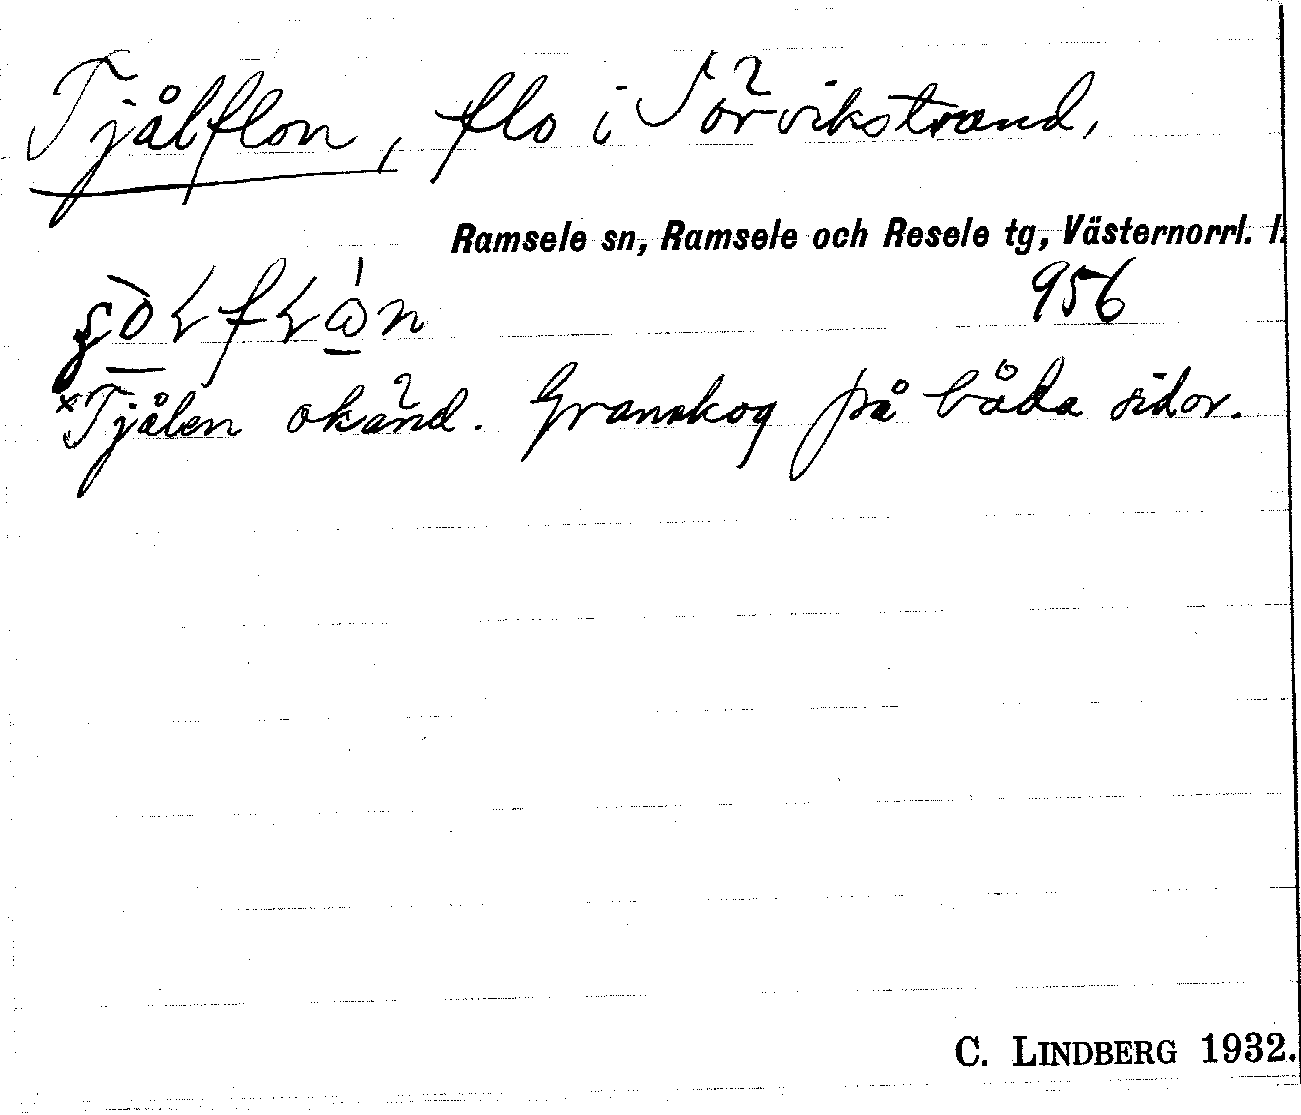 Tjålflon, flo i Sörvikstrand,
Ramsele sn, Ramsele och Resele tg, Västernorrl. l.
956
×Tjålen okänd. Granskog på båda sidor.
C. LINDBERG 1932.